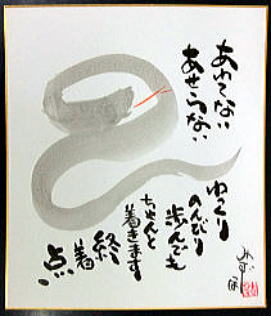 あわてない
あせらない
ゆっくり
のんびり
歩んでも
ちゃんと
着きます
終着
点
みずほ